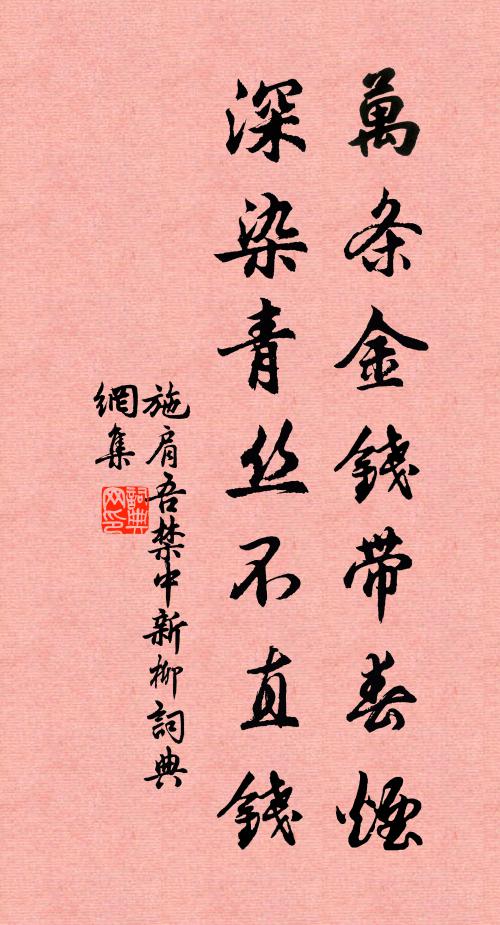 萬条金錢带春煙
深染青丝不直錢
施肩吾禁中新柳詞典
網集
詞典
网印